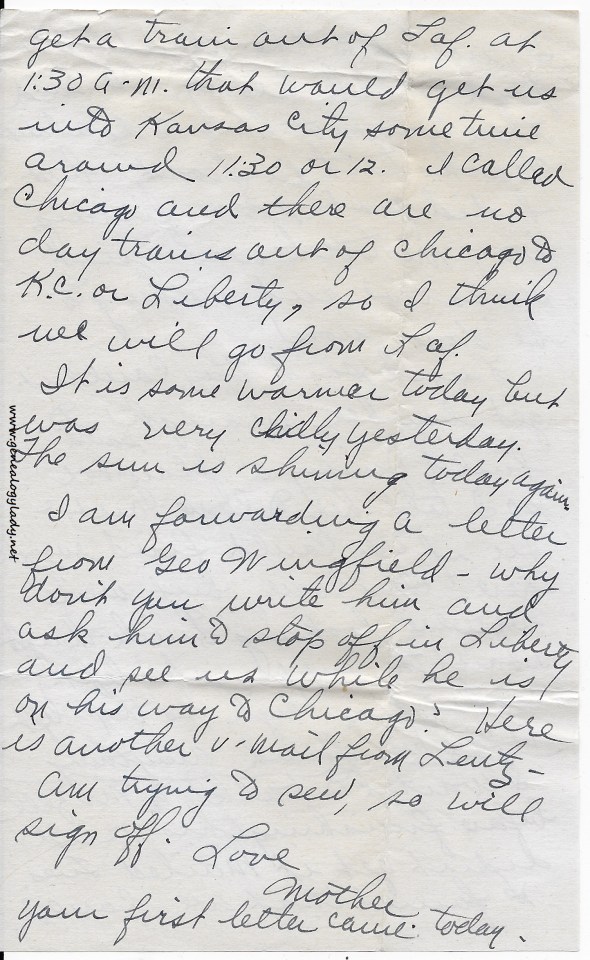 get a train out of Laf. at
1:30 a.m. that would get us
into Kansas City sometime
around 11:30 or 12. I called
Chicago and there are no
day trains out of Chicago to
K.C. or Liberty, so I think
we will go from Laf.
It is some warmer today but
was very chilly yesterday.
The sun is shining today again.
I am forwarding a letter
from Geo Wingfield - why
don't you write him and
ask him to stop off in Liberty
and see us while he is
on his way to Chicago? Here
is another v-mail from Lentz -
Am trying to sew, so will
sign off. Love
Mother
your first letter came today.
www.genealogylady.net